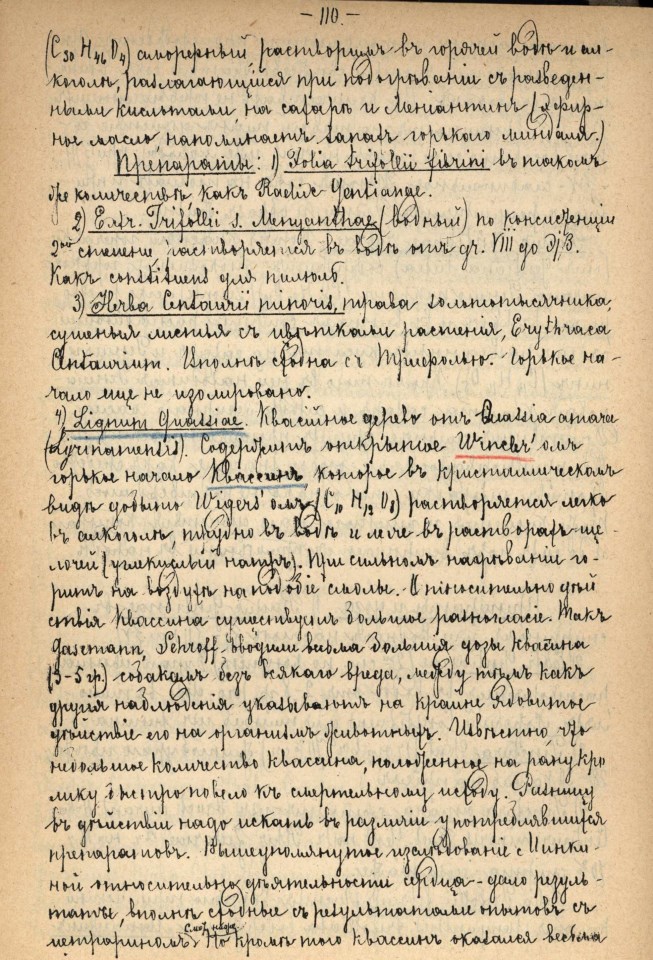 — 110. —
(C30 H46 O4) аморфный, растворимъ въ горячей водѣ и ал-
коголѣ, разлагающійся при подогрѣваніи съ разведен-
ными кислотами, на сахаръ и меніантинъ (эфир-
ное масло, напоминаетъ запахъ горькаго миндаля.)
Препараты: 1) Folia trifolii fibrini въ такомъ
же количествѣ, какъ Radix Gentianae.
2) Extr. Trifolii s. Menyanthae (водный) по консистенціи
2ой степени, растворяется въ водѣ отъ gr. VIII до Ʒj/3.
Какъ constituens для пилюль.
3) Herba Centaurii minoris, трава золототысячника,
сушеныя листья съ цвѣтками растенія, Erythraea
Centaurium. Вполнѣ сходна съ Трифолью. Горькое на-
чало еще не изолировано.
4) Lignum Quassiae. Квассійное дерево отъ Quassia amara
(Syrinamensis). Содержитъ открытое Wincler'омъ
горькое начало Квассинъ, которое въ кристаллическомъ
видѣ добыто Wigers'омъ (C10 H12 O3) растворяется легко
въ алкоголѣ, трудно въ водѣ и легче въ растворахъ ще-
лочей (углекислый натръ). При сильномъ нагрѣваніи го-
ритъ на воздухѣ на подобіе смолы. Относительно дѣй
ствія Квассина существуетъ большое разногласіе. Такъ
Husemann, Schroff вводили весьма большія дозы квасина
(3-5 гр.) собакамъ безъ всякаго вреда, между тѣмъ какъ
другія наблюденія указываютъ на крайне ядовитое
дѣйствіе его на организмъ животныхъ. Извѣстно, что
небольшое количество квассина, положенное на рану кро
лику быстро повело къ смертельному исходу. Разницу
въ дѣйствіи надо искать въ различіи употреблявшихся
препаратовъ. Вышеупомянутое изслѣдованіе
относительно дѣятельности сердца - дало резуль-
таты, вполнѣ сходные съ результатами опытовъ съ
цетрариномъ. Но кромѣ того квассинъ оказался весьма